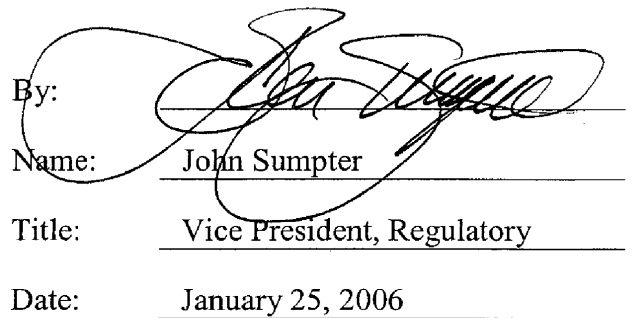 By:
Name: John Sumpter
Title: Vice President, Regulatory
Date: January 25, 2006